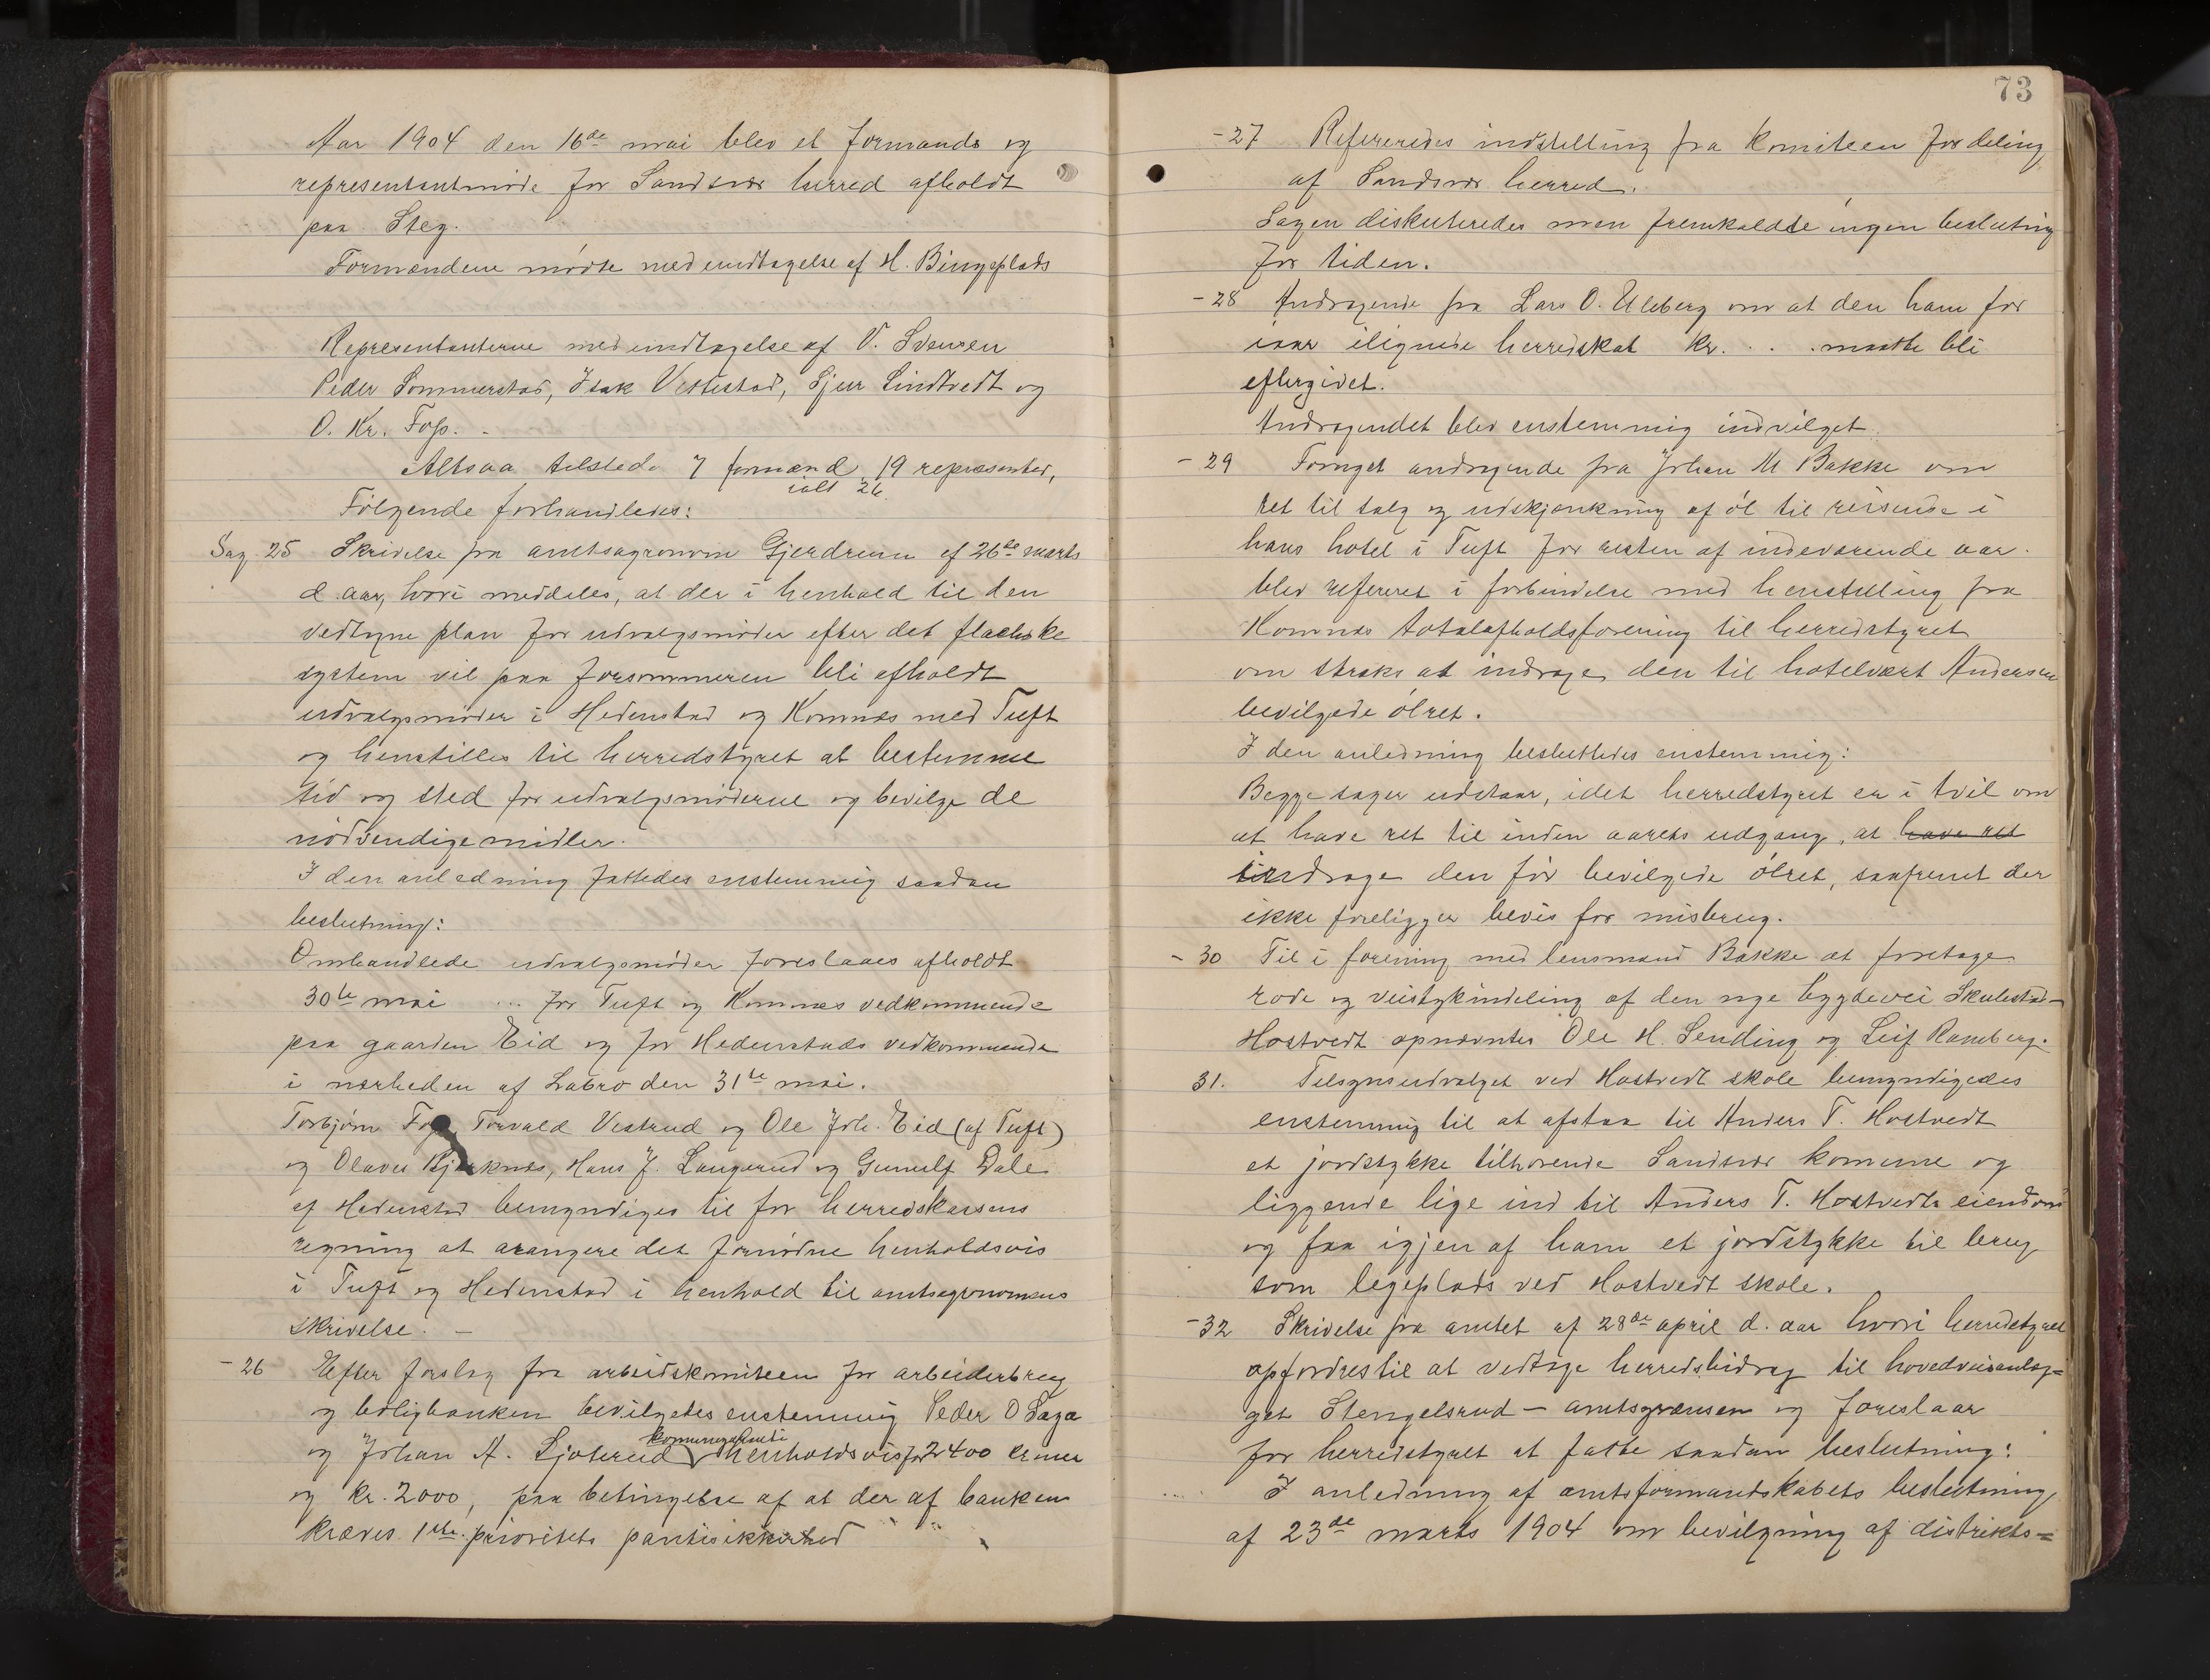 Aar 1904 den 16de mai blev et formands og
representantmøde for Sandsvær herred afholdt
paa Steg.
Formændene mødte med undtagelse af H. Bingeplads
Representanterne med undtagelse af V. Svensen
Peder Sommerstad, Isak Vestestad, Sjur Lindtvedt og
O. Kr. Foss.
Altsaa tilstede 7 formænd 19 representer,
ialt 26.
Følgende forhandledes:
Sag. 25 Skrivelse fra amtsagronom Gjerdrum af 26de marts
d. aar, hvori meddeles, at der i henhold til den
vedtagne plan for udvalgsmøder efter det flachske
system vil paa forsommeren bli afholdt
udvalgsmøder i Hedenstad og Komnæs med Tuft
og henstilles til herredstyret at bestemme
tid og sted for udvalgsmøderne og bevilge de
nødvendige midler.
I den anledning fattedes enstemmig saadan
beslutning:
Omhandlede udvalgsmøder foreslaaes afholdt
30te mai ... for Tuft og Komnæs vedkommende
paa gaarden Eid og for Hedenstads vedkommende
i nærheden af Labro den 31te mai.
Torbjørn Foss, Torvald Vestrud og Ole Joh. Eid (af Tuft)
og Olaves Bjerknæs, Hans J. Langerud og Gunulf Dale
af Hedenstad bemyndiges til for herredskassens
regning at arangere det fornødne henholdsvis
i Tuft og Hedenstad i henhold til amtsagronomens
skrivelse. —
- 26 Efter forslag fra arbeidskomiteen for arbeiderbrug
og boligbanken bevilgedes enstemmig Peder O Saga
kommunegaranti
og Johan A. Ljoterud henholdsvis for 2400 kroner
og kr. 2000, paa betingelse af at der af banken
kræves 1ste prioritets pantesikkerhed
73
- 27 Refereredes indstilling fra komiteen for deling
af Sandsvær herred.
Sagen diskuteredes men fremkaldte ingen beslutning
for tiden.
- 28 Andragende fra Lars O. Ulleberg om at den ham for
iaar ilignede herredskat kr. . . . maatte bli
eftergivet.
Andragendet blev enstemmig indvilget.
- 29 Fornyet andragende fra Johan M Bakke om
ret til salg og udskjænkning af øl til reisende i
hans hotel i Tuft for resten af indeværende aar.
blev refereret i forbindelse med henstilling fra
Komnæs totalafholdsforening til herredstyret
om straks at inddrage den til hotelvært Andersen
bevilgede ølret.
I den anledning besluttedes enstemmig:
Begge sager udstaar, idet herredstyret er i tvil om
at have ret til inden aarets udgang, at have ret
inddrage den før bevilgede ølret, saafremt der
ikke foreligger bevis for misbrug.
- 30 Til i forening med lensmand Bakke at foretage
rode og veistykindeling af den nye bygdevei Skulestad-
Hostvedt opnævntes Ole H. Sending og Leif Ramberg.
31. Tilsynsudvalget ved Hostvedt skole bemyndigedes
enstemmig til at afstaa til Anders T. Hostvedt
et jordstykke tilhørende Sandsvær komune og
liggende lige ind til Anders T. Hostvedts eiendom
og faa igjen af ham et jordstykke til brug
som legeplads ved Hostvedt skole.
- 32 Skrivelse fra amtet af 28de april d. aar hvori herredstyret
opfordres til at vedtage herredsbidrag til hovedveisanlæg=
get Stengelsrud – amtsgrænsen og foreslaar
for herredstyret at fatte saadan beslutning:
I anledning af amtsformandskabets beslutning
af 23de marts 1904 om bevilgning af distrikts=